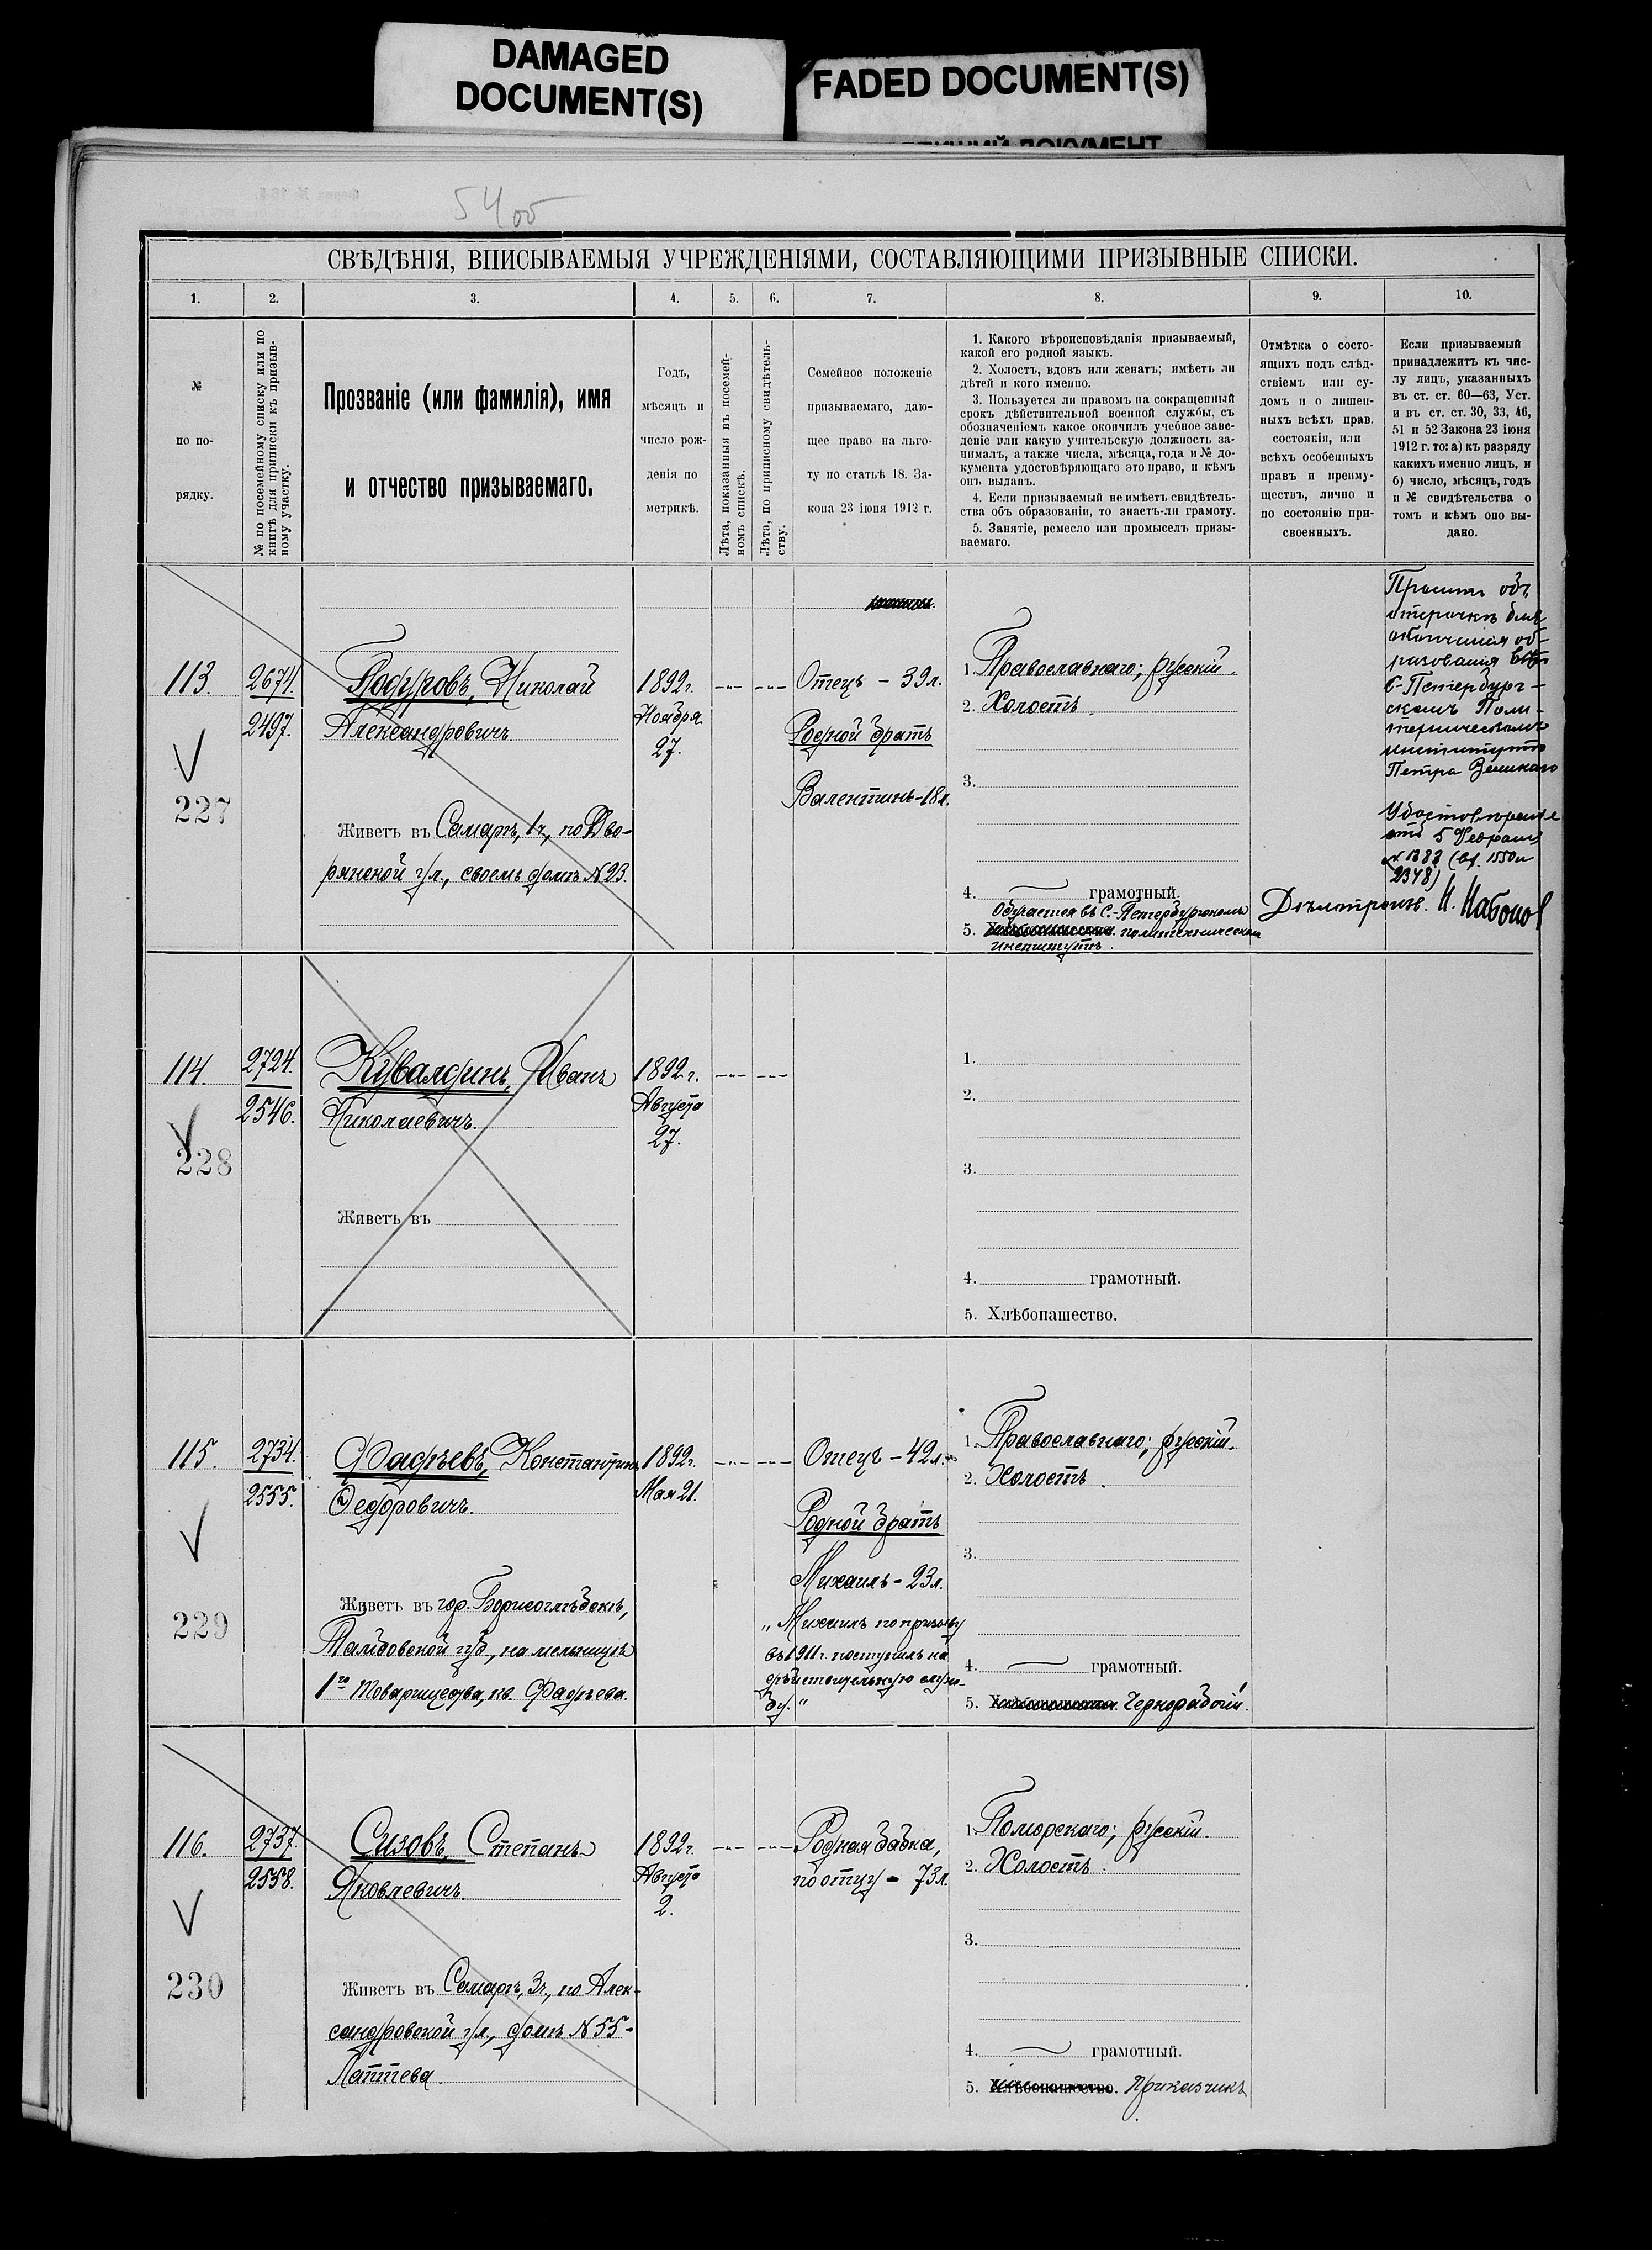 DAMAGED
DOCUMENT(S)
FADED DOCUMENT(S)
ДОКУМЕНТ
54 об
СВѢДѢНІЯ, ВПИСЫВАЕМЫЯ УЧРЕЖДЕНІЯМИ, СОСТАВЛЯЮЩИМИ ПРИЗЫВНЫЕ СПИСКИ.
1. 2. 3. 4. 5. 6. 7. 8. 9. 10.
№
по по-
рядку.
№ по посемейному списку или по
книгѣ для приписки къ призыв-
ному участку.
Прозваніе (или фамилія), имя
и отчество призываемаго.
Годъ,
мѣсяцъ и
число рож-
денія по
метрикѣ.
Лѣта, показанныя въ посемей-
номъ спискѣ.
Лѣта, по приписному свидѣтель-
ству.
Семейное положеніе
призываемаго, даю-
щее право на льго-
ту по статьѣ 18. За-
кона 23 іюня 1912 г.
1. Какого вѣроисповѣданія призываемый,
какой его родной языкъ.
2. Холостъ, вдовъ или женатъ; имѣетъ ли
дѣтей и кого именно.
3. Пользуется ли правомъ на сокращенный
срокъ дѣйствительной военной службы, съ
обозначеніемъ какое окончилъ учебное заве-
деніе или какую учительскую должность за-
нималъ, а также числа, мѣсяца, года и № до-
кумента удостовѣряющаго это право, и кѣмъ
онъ выданъ.
4. Если призываемый не имѣетъ свидѣтель-
ства объ образованіи, то знаетъ-ли грамоту.
5. Занятіе, ремесло или промыселъ призы-
ваемаго.
Отмѣтка о состо-
ящихъ подъ слѣд-
ствіемъ или су-
домъ и о лишен-
ныхъ всѣхъ прав.
состоянія, или
всѣхъ особенныхъ
правъ и преиму-
ществъ, лично и
по состоянію при-
своенныхъ.
Если призываемый
принадлежитъ къ чис-
лу лицъ, указанныхъ
въ ст. ст. 60—63, Уст.
и въ ст. ст. 30, 33, 46,
51 и 52 Закона 23 іюня
1912 г. то: а) къ разряду
какихъ именно лицъ, и
б) число, мѣсяцъ, годъ
и № свидѣтельства о
томъ и кѣмъ оно вы-
дано.
113.
2674.
2497.
227
Подуровъ, Николай
Александровичъ
Живетъ въ Самарѣ, 1ч, по Дво-
рянской ул., своемъ домѣ №93.
1892г.
Ноября
27.
Отецъ - 39л.
Родной братъ
Валентинъ-18л.
1. Православнаго; русскій.
2. Холостъ.
3.
4. грамотный.
Обучается въ С.-Петербургскомъ
5. политехническомъ
институтѣ.
Проситъ объ
отсрочкѣ для
окончанія об-
разованія
С-Петербург-
скомъ Поли-
техническомъ
институтѣ
Петра Великаго
5 Февраля
№ 1383 (вх. 1550 и
2348)
114.
2724.
2546.
228
Кувалдинъ, Иванъ
Николаевичъ.
Живетъ въ
1892г.
Августа
27.
1.
2.
3.
4. грамотный.
5. Хлѣбопашество.
115.
2734.
2555.
229
Фадѣевъ, Константинъ
Федоровичъ.
Живетъ въ гор. Борисоглѣбскѣ,
Тамбовской губ., на мельницѣ
1го Товарищества, кв Фадѣева.
1892г.
Мая 21.
Отецъ - 42л.
Родной братъ
Михаилъ - 23л.
„Михаилъ по призыву
въ 1911г. поступилъ на
дѣйствительную служ-
бу.“
1. Православнаго; русскій.
2. Холостъ.
3.
4. грамотный.
5. Чернорабочій.
116.
2737.
2558.
230
Сизовъ, Степанъ
Яковлевичъ.
Живетъ въ Самарѣ, 3ч, по Алек-
сандровской ул., домъ №55-
Лаптева.
1892г.
Августа
2.
Родная бабка,
по отцу - 73л.
1. Поморскаго; русскій.
2. Холостъ.
3.
4. грамотный.
5. Хлѣбопашество. Приказчикъ